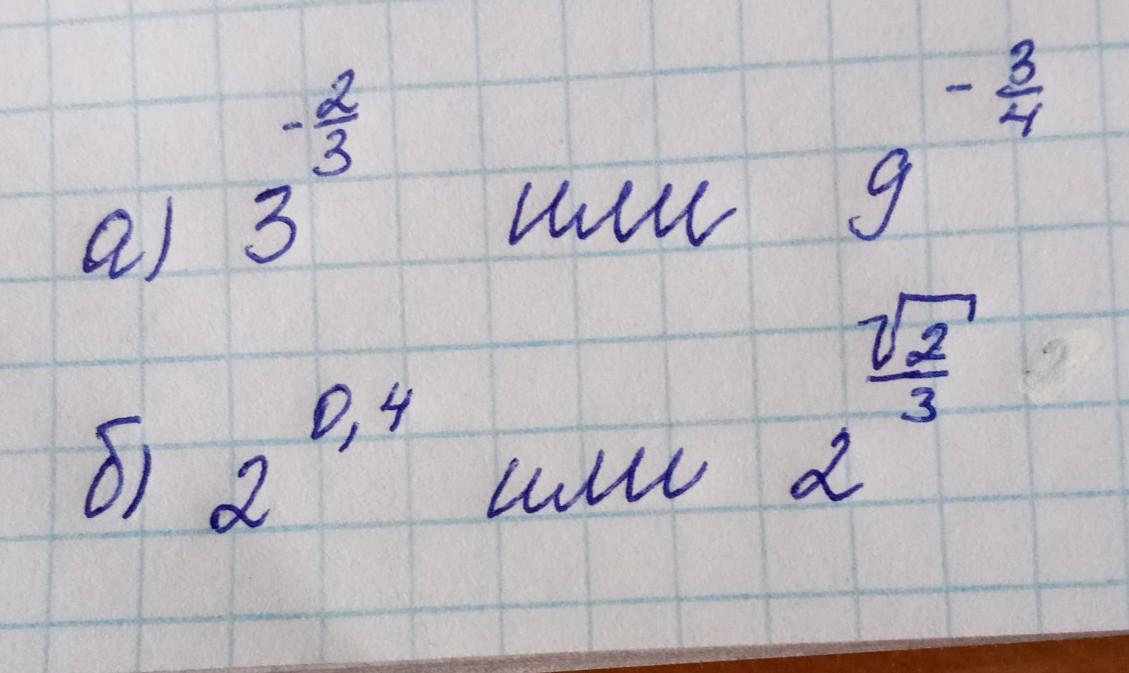 а) 3^{-\frac{2}{3}} или 9^{-\frac{3}{4}}
б) 2^{0,4} или 2^{\frac{\sqrt{2}}{3}}